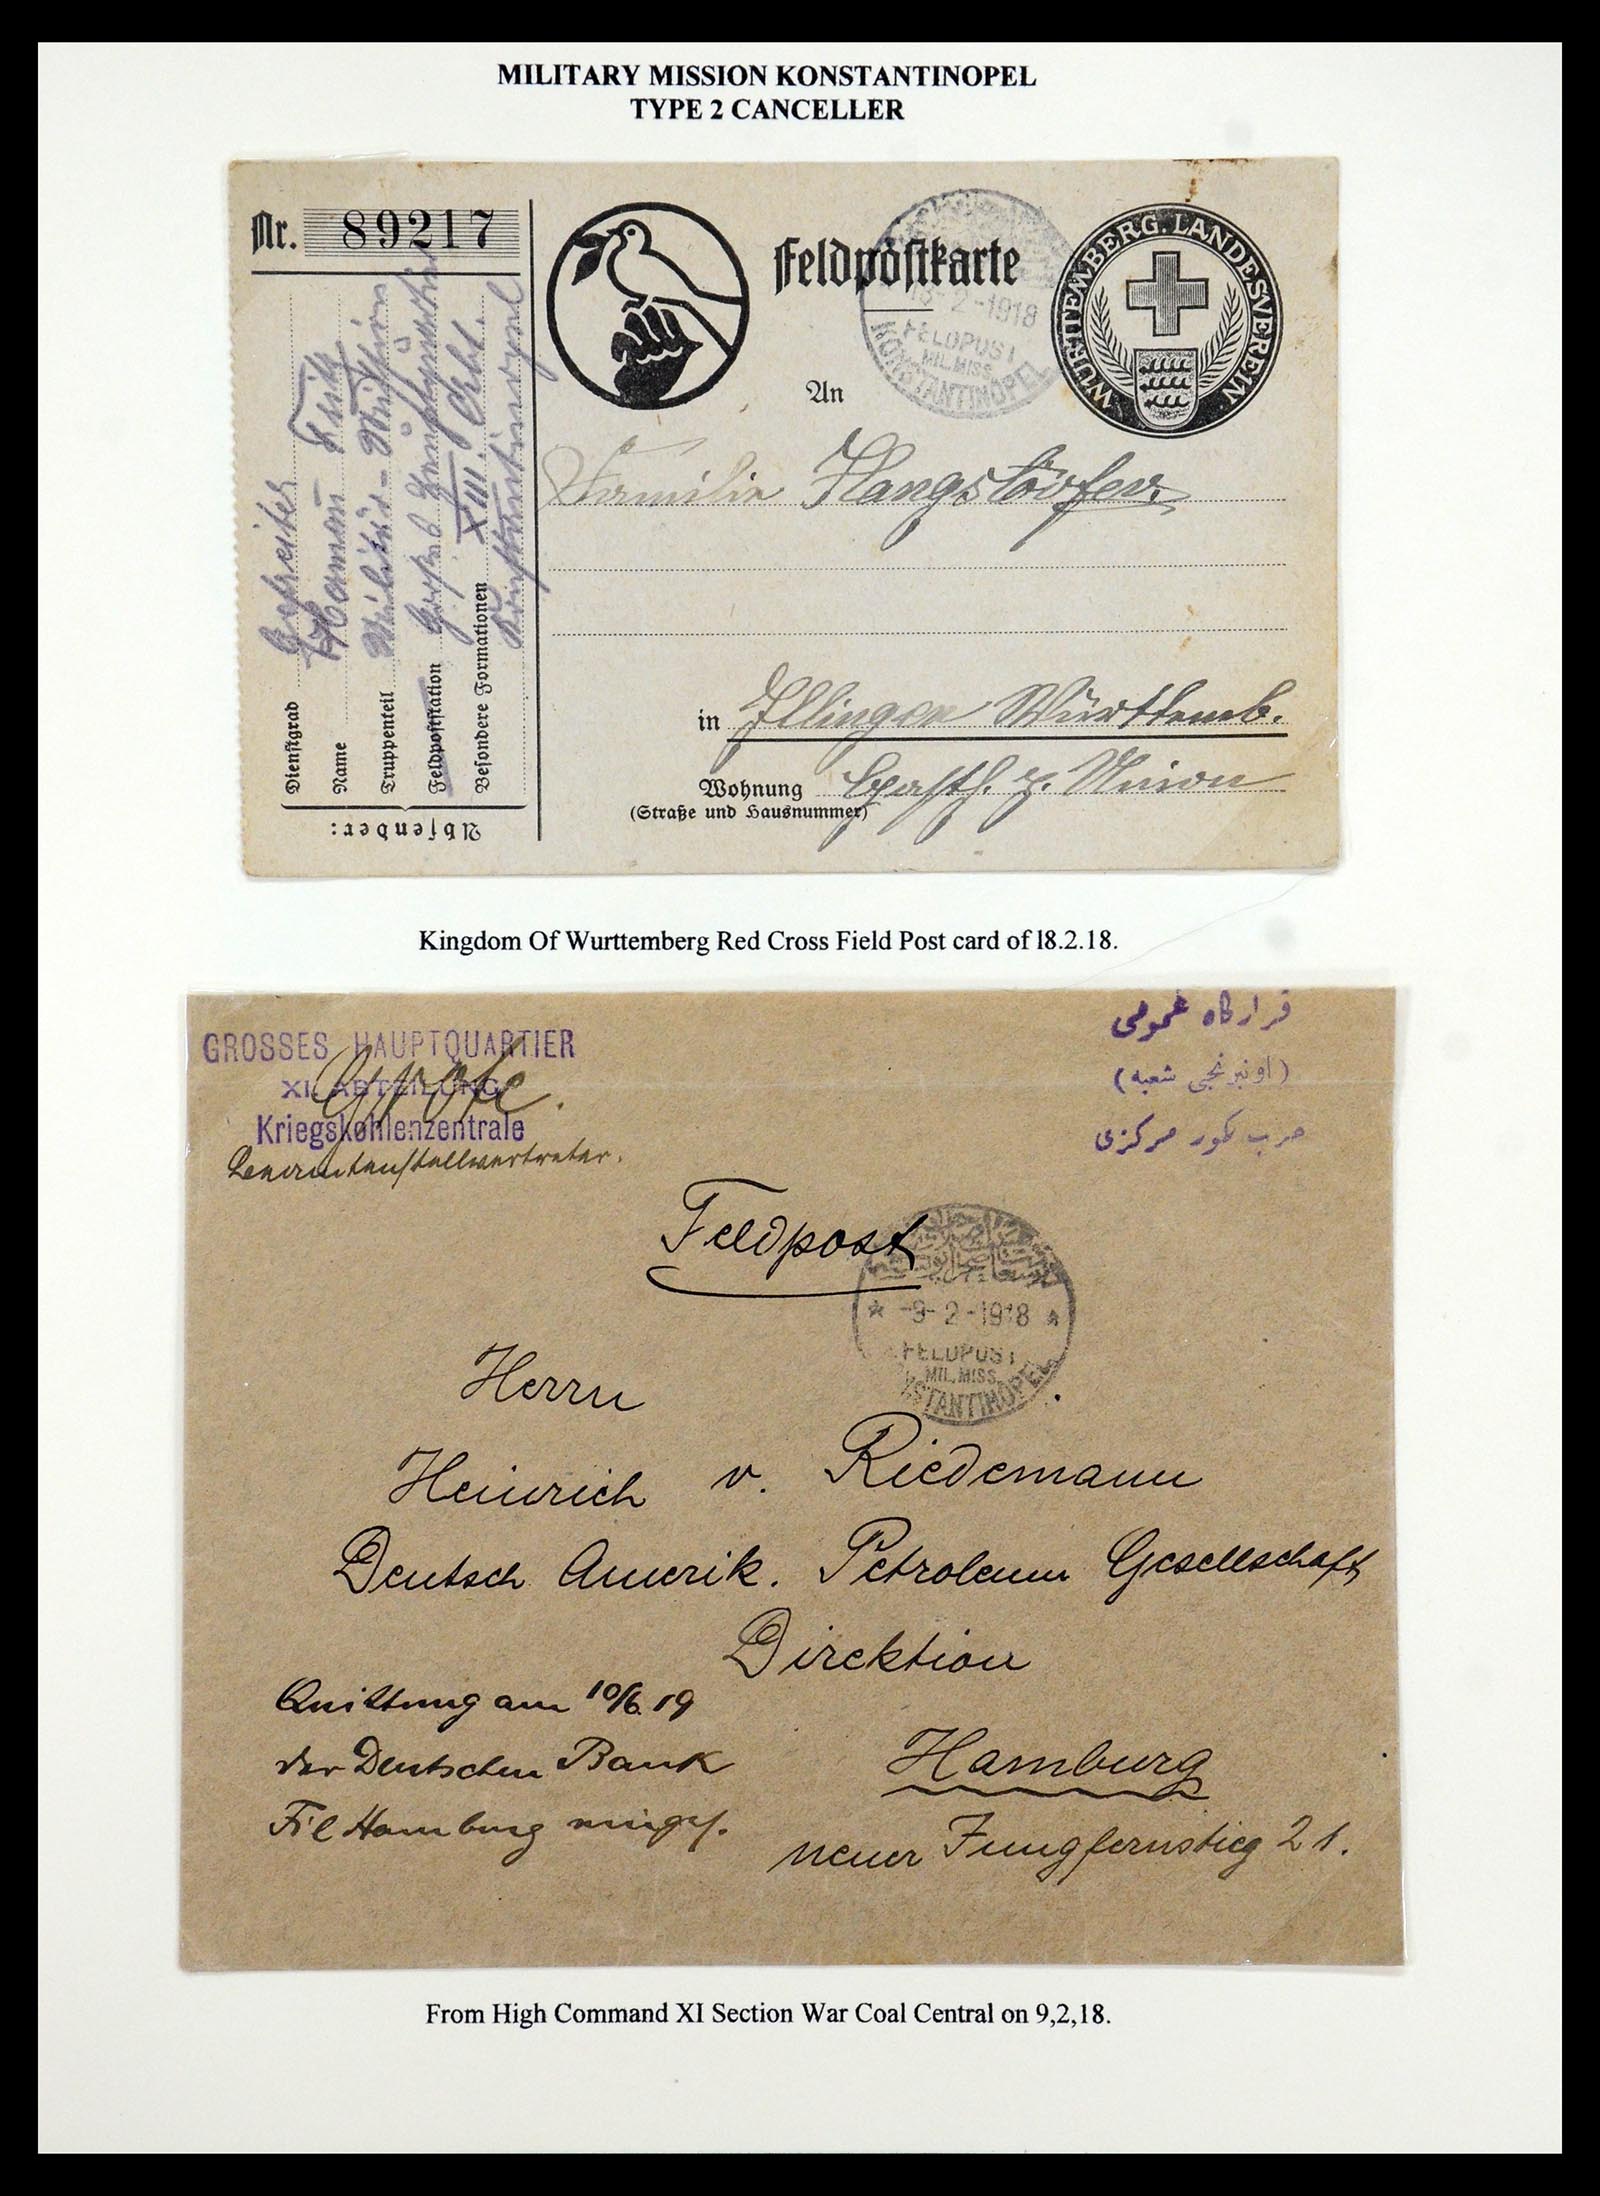 MILITARY MISSION KONSTANTINOPEL
TYPE 2 CANCELLER
Nr. 89217
Feldpostkarte
WÜRTTEMBERG. LANDESVEREIN
18-2-1918
FELDPOST
MIL. MISS.
KONSTANTINOPEL
An
Familie
in Illingen Württemb.
Wohnung Gasth. z. Union
(Straße und Hausnummer)
Absender:
Dienstgrad Gefreiter
Name Hermann
Truppenteil Militär-Mission
Feldpoststation Großes Hauptquartier
Besondere Formationen XIII. Abt.
Konstantinopel
Kingdom Of Wurttemberg Red Cross Field Post card of l8.2.18.
GROSSES HAUPTQUARTIER
XI. ABTEILUNG
Kriegskohlenzentrale
Beamtenstellvertreter.
قرارگاه عمومی
(اونبرنجی شعبه)
حرب كور مركزی
Feldpost
-9-2-1918
FELDPOST
MIL. MISS.
KONSTANTINOPEL
Herrn
Heinrich v. Riedemann
Deutsch Amerik. Petroleum Gesellschaft
Direktion
Hamburg
neuer Jungfernstieg 21.
Quittung am 10/6.19
der Deutschen Bank
Fil Hamburg
From High Command XI Section War Coal Central on 9,2,18.